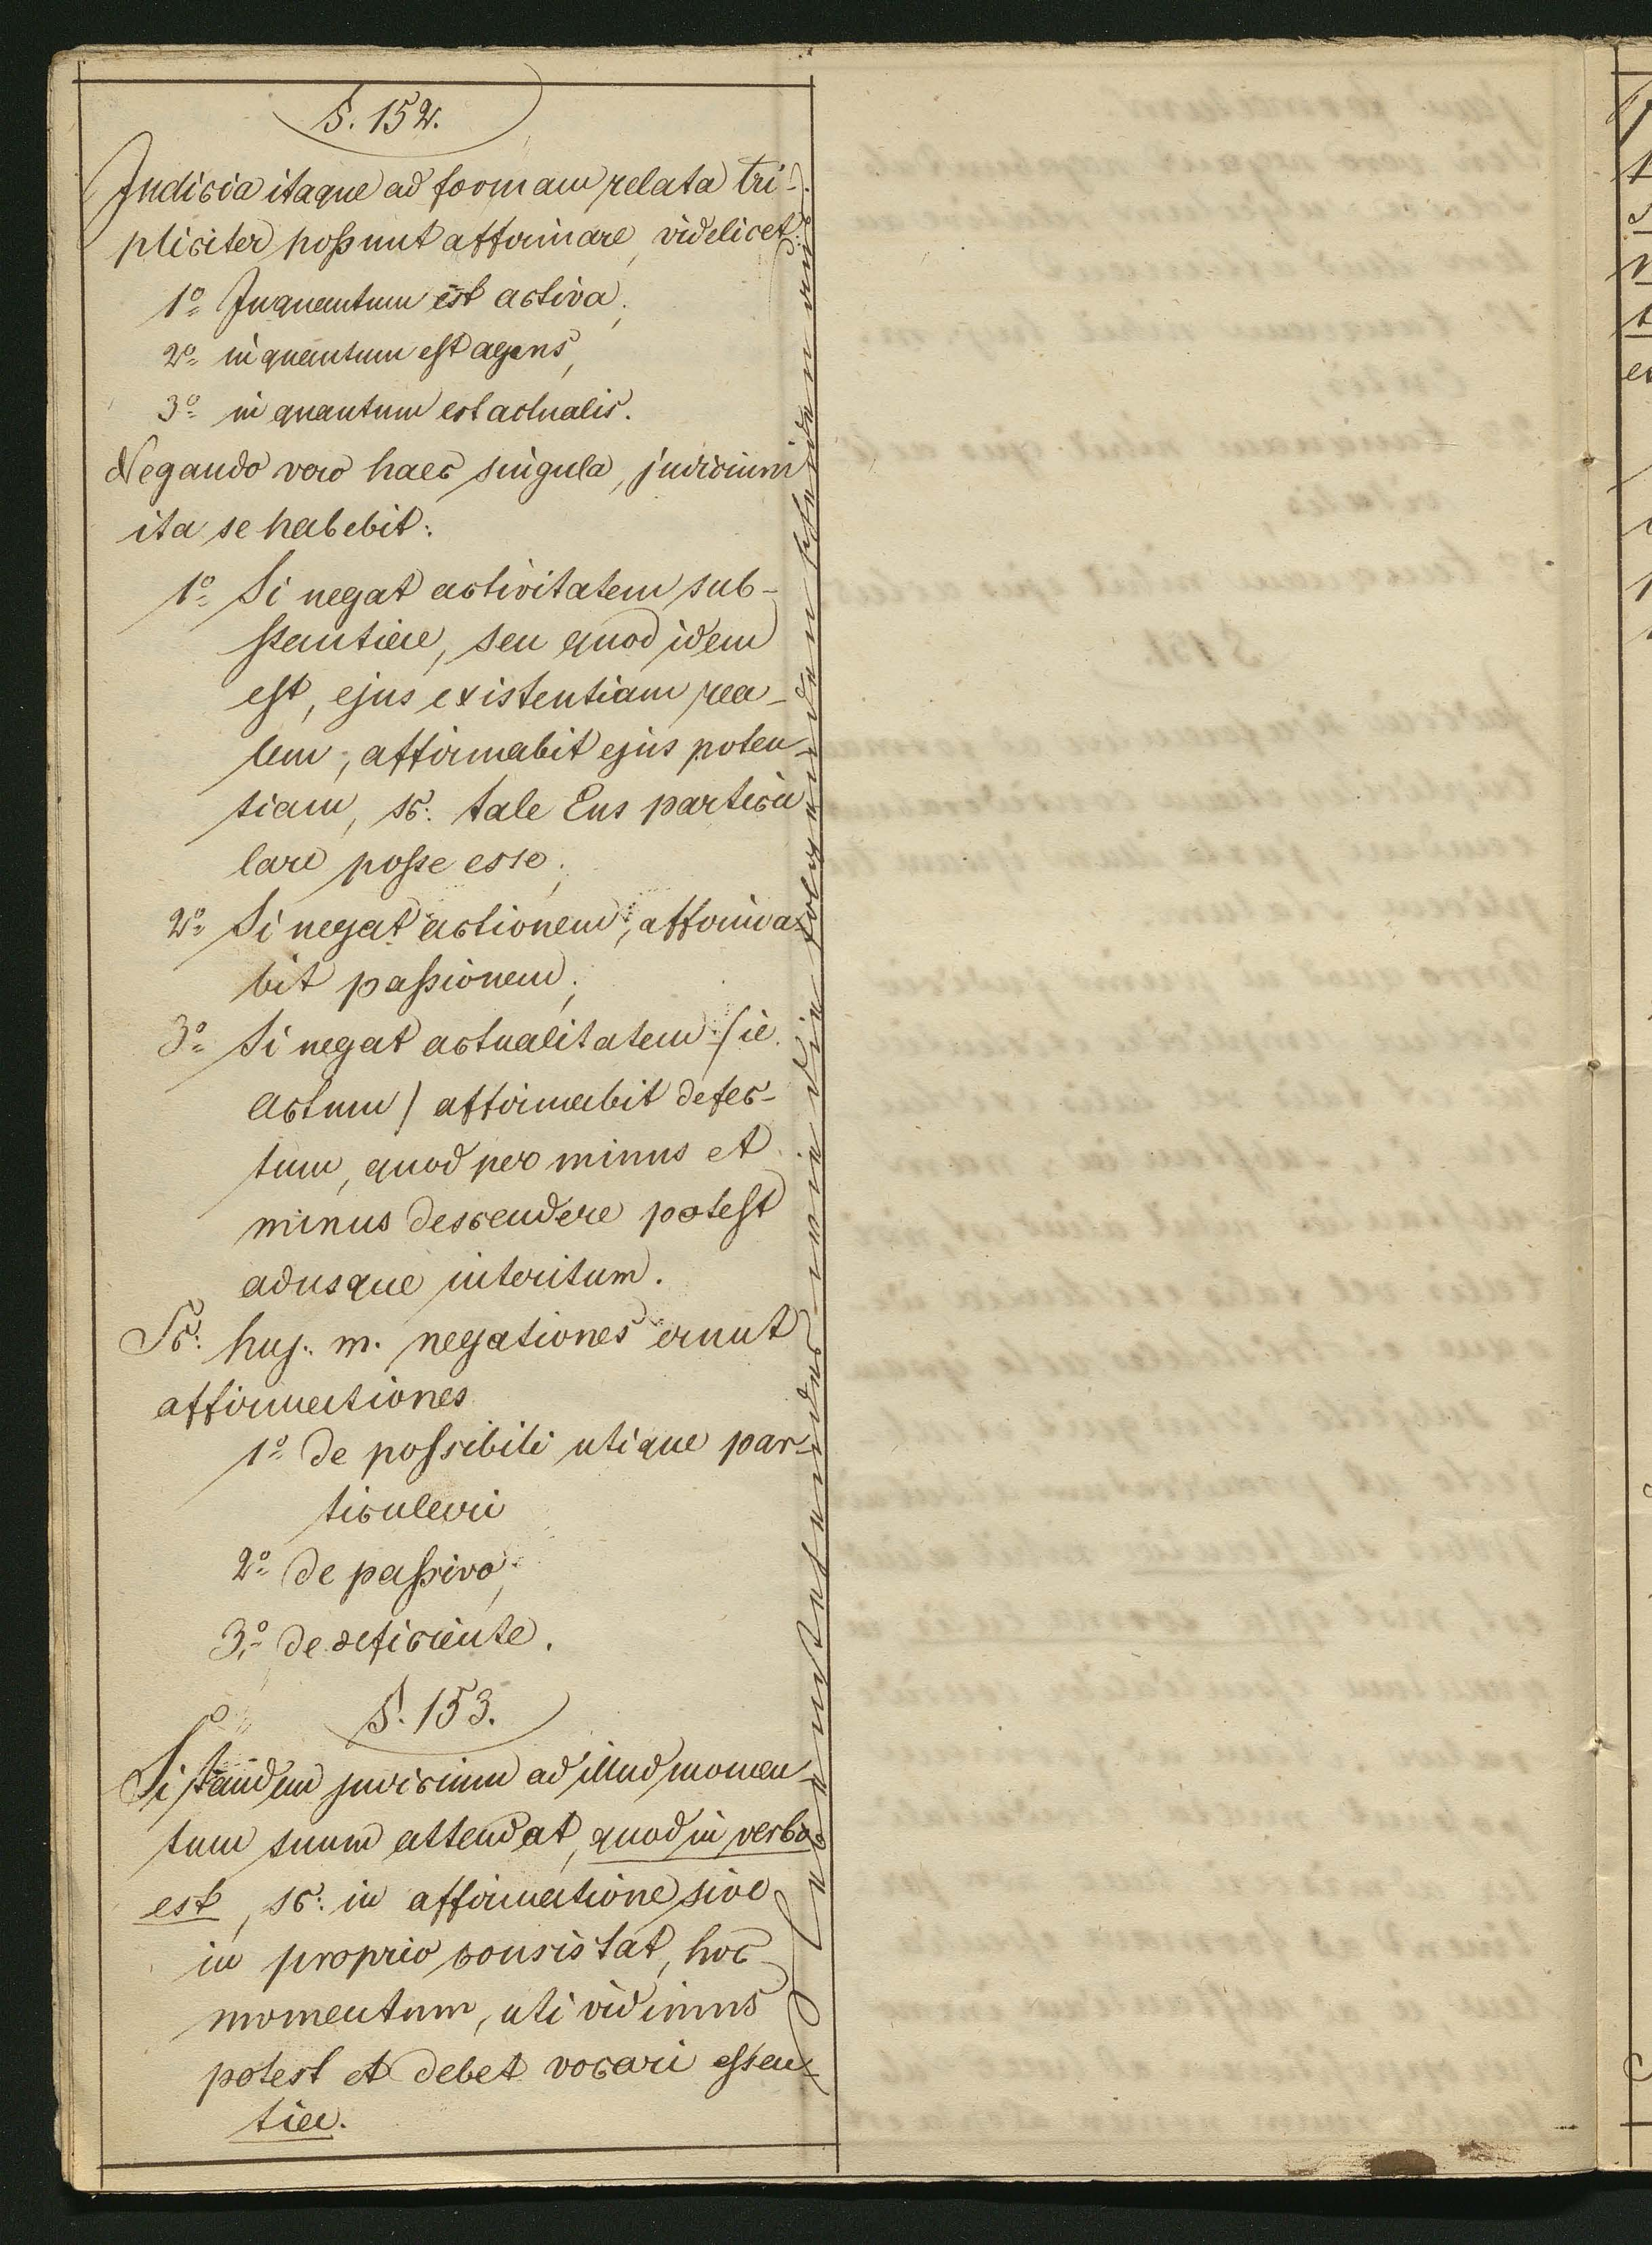 §. 152.
Judicia itaque ad formam relata tri-
pliciter possunt affirmare, videlicet:
1º Inquantum est activa;
2º in quantum est agens,
3º in quantum est actualis.
Negando vero haec singula, judicium
ita se habebit:
1º Si negat activitatem sub-
stantiae, seu quod idem
est, ejus existentiam rea-
lem, affirmabit ejus poten-
tiam, sc: tale Ens particu
lare posse esse;
2º Si negat actionem, affirma-
bit passionem;
3º Si negat actualitatem (ie.
actum) affirmabit defec-
tum, quod per minus et
minus descendere potest
adusque interitum.
Sc: huj. m. negationes erunt
affirmationes
1º de possibili utique par-
ticulari
2º de passivo;
3º de deficiente.
§. 153.
Si tandem judicium ad illud momen-
tum suum attendat, quod in verbo
est, sc: in affirmatione sive
in proprio consistat, hoc
momentum, uti vidimus
potest et debet vocari essen-
tia.